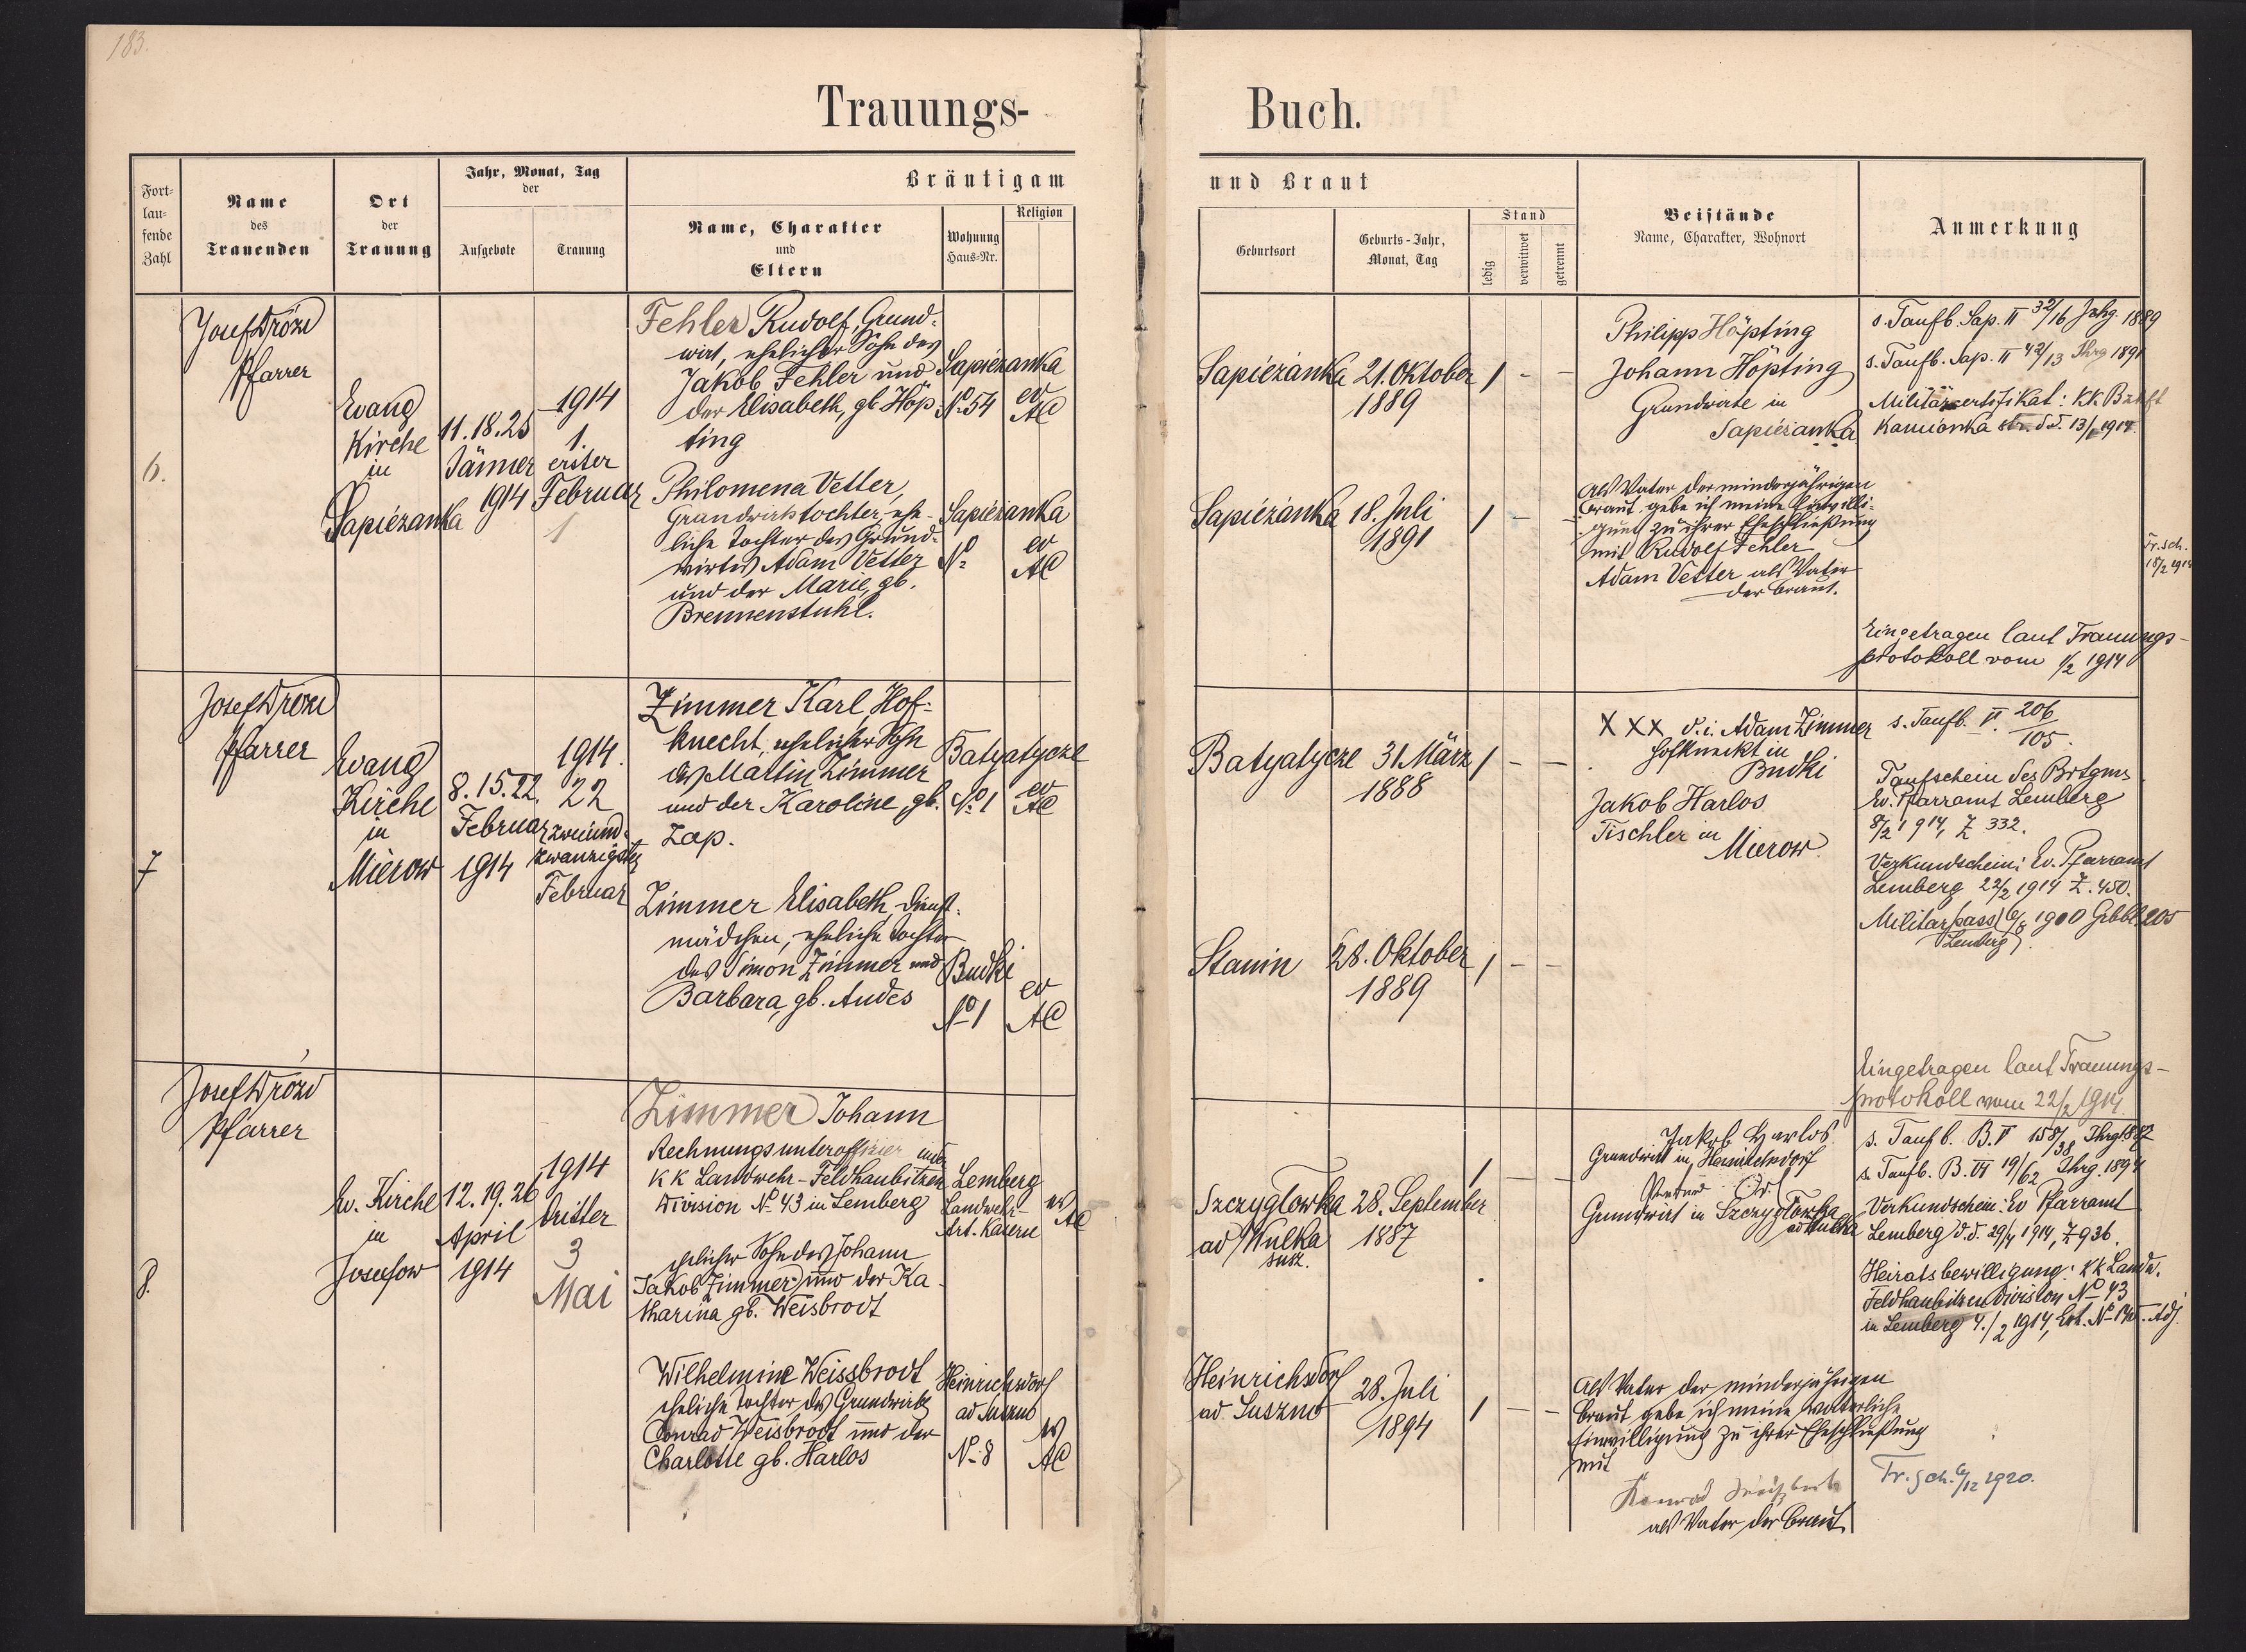 183.
Trauungs-
Buch.
Fort-
lau-
fende
Zahl
Name
des
Trauenden
Ort
der
Trauung
Jahr, Monat, Tag
der
Aufgebote
Trauung
Bräutigam
Name, Charakter
und
Eltern
Wohnung
Haus-Nr.
Religion
und Braut
Geburtsort
Geburts-Jahr,
Monat, Tag
Stand
ledig
verwitwet
getrennt
Beistände
Name, Charakter, Wohnort
Anmerkung
6.
Josef Drózd
Pfarrer
Evang
Kirche
in
Sapieżanka
11. 18. 25
Jänner
1914
1914
1.
erster
Februar
1
Fehler Rudolf, Grund-
wirt, ehelicher Sohn des
Jakob Fehler und
der Elisabeth, gb. Höp-
ting
Sapieżanka
No 54
ev
AC
Philomena Vetter,
Grundwirtstochter, ehe-
liche Tochter des Grund-
wirtes Adam Vetter
und der Marie, gb.
Brennenstuhl.
Sapieżanka
No
ev
AC
Sapieżanka
21. Oktober
1889
/ - -
Philipp Höpting
Johann Höpting
Grundwirte in
Sapieżanka
s. Taufb. Sap. II 32/16 Jahrg. 1889
s. Taufb. Sap. II 42/13 Jhrg 1891
Militärzertifikat: KK. Bzkhft
Kamionka str. d.d. 13/1 1914.
Sapieżanka
18. Juli
1891
/ - -
Als Vater der minderjährigen
Braut gebe ich meine Einwilli-
gung zu ihrer Eheschließung
mit Rudolf Fehler
Adam Vetter als Vater
der Braut.
Tr. sch.
18/2 1914
Eingetragen laut Trauungs-
protokoll vom 1/2 1914
7
Josef Drózd
Pfarrer
Evang
Kirche
in
Mierow
8. 15. 22.
Februar
1914
1914.
22
zweiund-
zwanzigster
Februar
Zimmer Karl, Hof-
knecht, ehelicher Sohn
des Martin Zimmer
und der Karoline, gb.
Zap.
Batyatycze
No 1
ev
AC
Zimmer Elisabeth, Dienst-
mädchen, eheliche Tochter
des Simon Zimmer und
Barbara, gb. Andes
Budki
No 1
ev
AC
Batyatycze
31 März
1888
/ - -
XXX d. i. Adam Zimmer
Hofknecht in
Budki
Jakob Harlos
Tischler in
Mierow.
s. Taufb. V. 206/105.
Taufschein des Brtgms
Ev. Pfarramt Lemberg
8/2 1914, Z 332.
Verkundschein: Ev. Pfarramt
Lemberg 22/2 1914 Z. 450.
Militärpass 6/8 1900 Grbbl 205
Lemberg
Stanin
28. Oktober
1889
/ - -
Eingetragen laut Trauungs-
protokoll vom 22/2 1914.
8.
Josef Drózd
Pfarrer
Ev. Kirche
in
Josefow
12. 19. 26
April
1914
1914
dritter
3
Mai
Zimmer Johann
Rechnungsunteroffizier in der
KK Landwehr-Feldhaubitzen
Division No 43 in Lemberg
ehelicher Sohn des Johann
Jakob Zimmer und der Ka-
tharina gb. Weisbrodt
Lemberg
Landwehr-
Art. Kaserne
ev
AC
Wilhelmine Weissbrodt
eheliche Tochter des Grundwirts
Conrad Weisbrodt und der
Charlotte gb. Harlos
Heinrichsdorf
ad Suszno
No 8
ev
AC
Szczyglowka
ad Wulka
susz.
28. September
1887
/ - -
Jakob Harlos
Grundwirt in Heinrichsdorf
Grundwirt in Szczyglowka
ad Wulka
s. Taufb. B. V 158/38 Jhrg 1887
s. Taufb. B. VI 19/62 Jhrg. 1894
Verkundschein: Ev Pfarramt
Lemberg d.d. 29/4 1914, Z 936.
Heiratsbewilligung: KK Landw.
Feldhaubitzen Division No 43
in Lemberg 4./2 1914, Ex. No Adj.
Heinrichsdorf
ad. Suszno
28. Juli
1894
/ - -
Als Vater der minderjährigen
Braut gebe ich meine väterliche
Einwilligung zu ihrer Eheschließung
mit
Konrad
als Vater der Braut
Tr. sch. 6/12 1920.